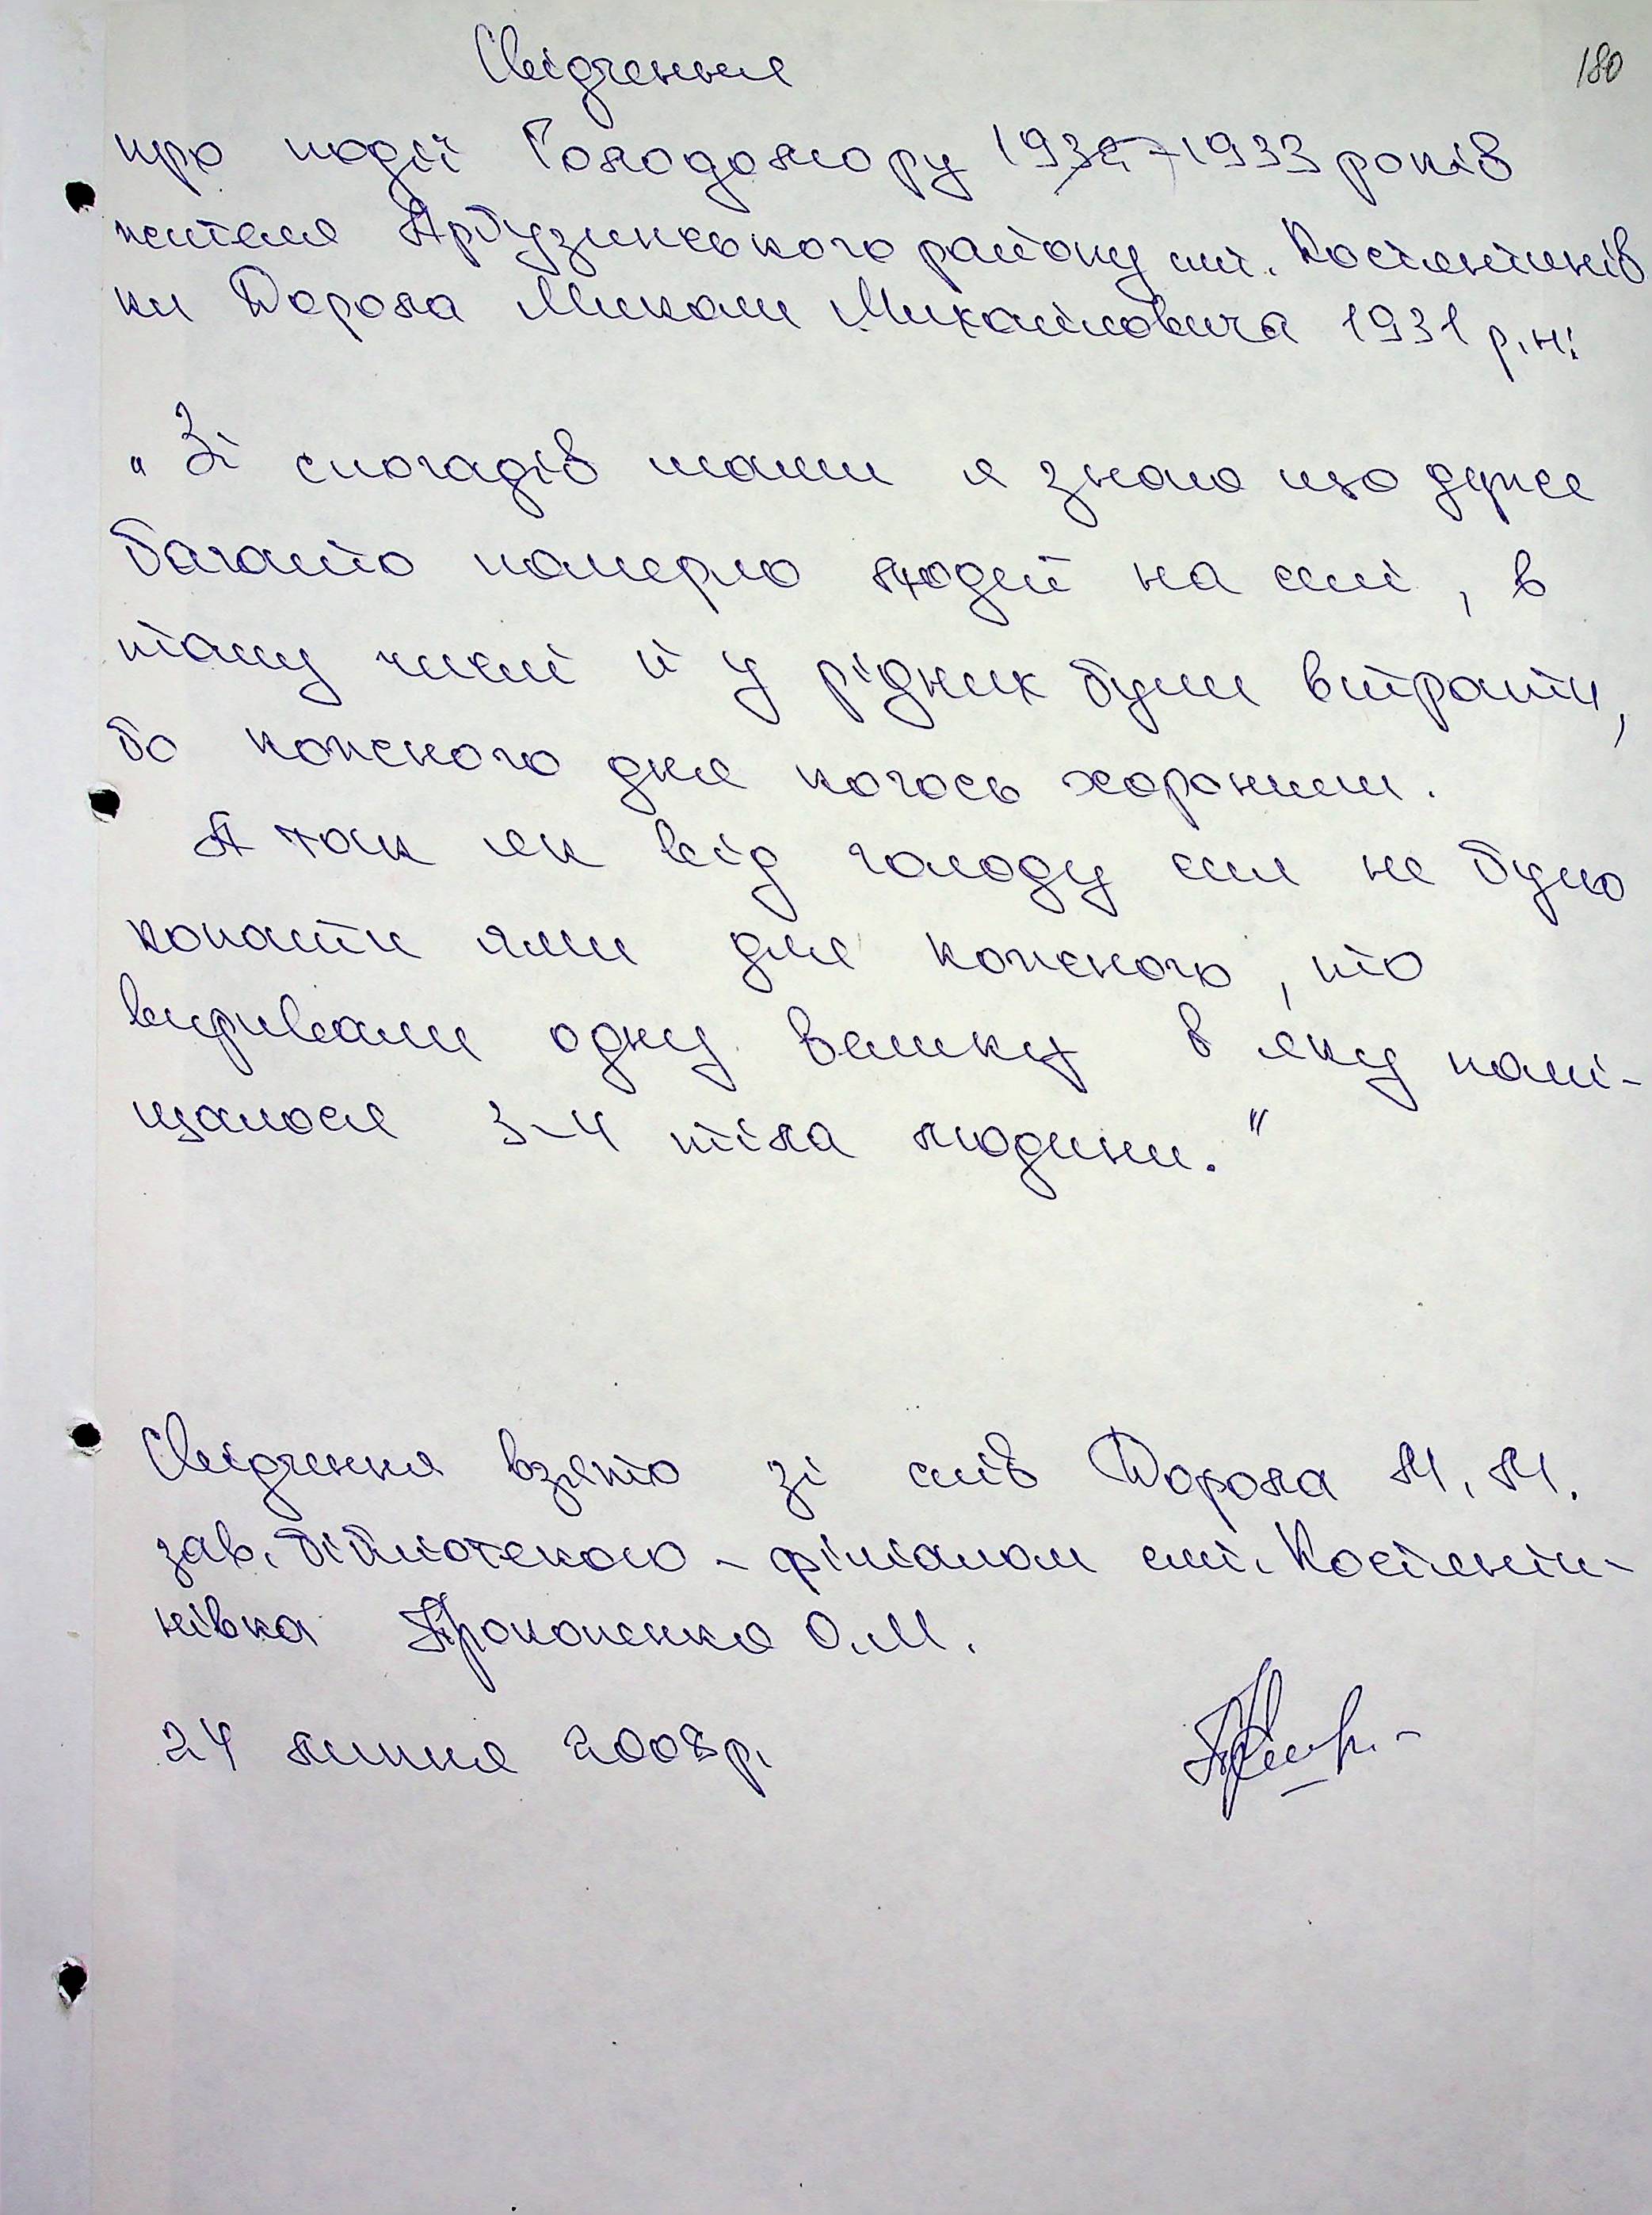 180
Свідчення
про події Голодомору 1932-1933 років
жителя Арбузинського району смт. Костянтинів
ки Дорола Миколи Михайловича 1931 р.н:
"Зі спогадів мами я знаю що дуже
багато померло людей на селі, в
тому числі й у рідних були втрати,
бо кожного дня когось хоронили.
А так як від голоду сил не було
копати ями для кожного, то
виривали одну велику в яку помі-
щалося 3-4 тіла людини."
Свідчення взято зі слів Дорола М.М.
зав. бібліотекою - філіалом смт. Костянти-
нівка Прокопенко О.М.
24 липня 2008р.